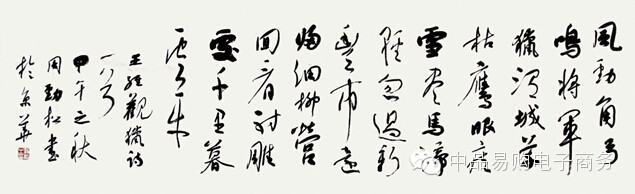 風勁角弓
鳴將軍
獵渭城草
枯鷹眼疾
雪尽馬蹄
輕忽過新
豐市還
歸細柳營
回看射雕
處千里暮
雲平
王維觀獵詩
一首
甲午之秋
周勁松書
於京華
中品易购电子商务